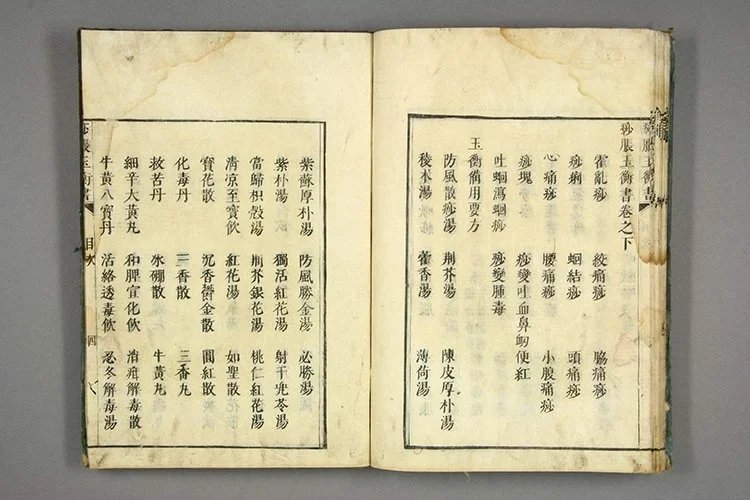 痧脹玉衡書卷之下
霍亂痧 絞痛痧 脇痛痧
痧痢 蛔結痧 頭痛痧
心痛痧 腰痛痧 小腹痛痧
痧塊 痧變吐血鼻衂便紅
吐蛔瀉蛔痧 痧變腫毒
玉衡備用要方
防風散痧湯 荆芥湯 陳皮厚朴湯
稜朮湯 藿香湯 薄荷湯
紫蘇厚朴湯 防風勝金湯 必勝湯
紫朴湯 獨活紅花湯 射干兠苓湯
當歸枳殻湯 荆芥銀花湯 桃仁紅花湯
清凉至寶飲 紅花湯 如聖散
寶花散 沉香欝金散 圓紅散
化毒丹 三香散 三香丸
救苦丹 氷硼散 牛黄散
細辛大黄丸 和脾宣化飲 消疳解毒散
牛黄八寶丹 活絡透毒飲 忍冬解毒湯
痧脹玉衡書 目次 四